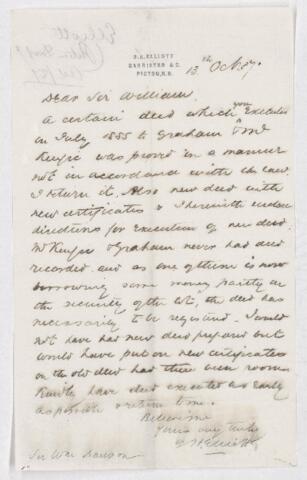 D. C. ELLIOTT
BARRISTER &C.
PICTOU, N.S.
13th Oct 87.
Dear Sir William.
A certain deed which you executed
in July 1885 to Graham & Mc
Kenzie was proved in a manner
not in accordance with the law.
I return it. Also new deed with
new certificates & I herewith enclose
directions for execution of new deed.
McKenzie & Graham never had deed
recorded and as one of them is now
borrowing some money partly on
the security of the lot, the deed has
necessarily to be registered. I would
not have had new deed prepared but
would have put on new certificates
on the old deed had there been room.
Kindly have deed executed as early
as possible & return to me.
Believe me
Yours very truly
Elliott
Sir Wm Dawson
Elliott